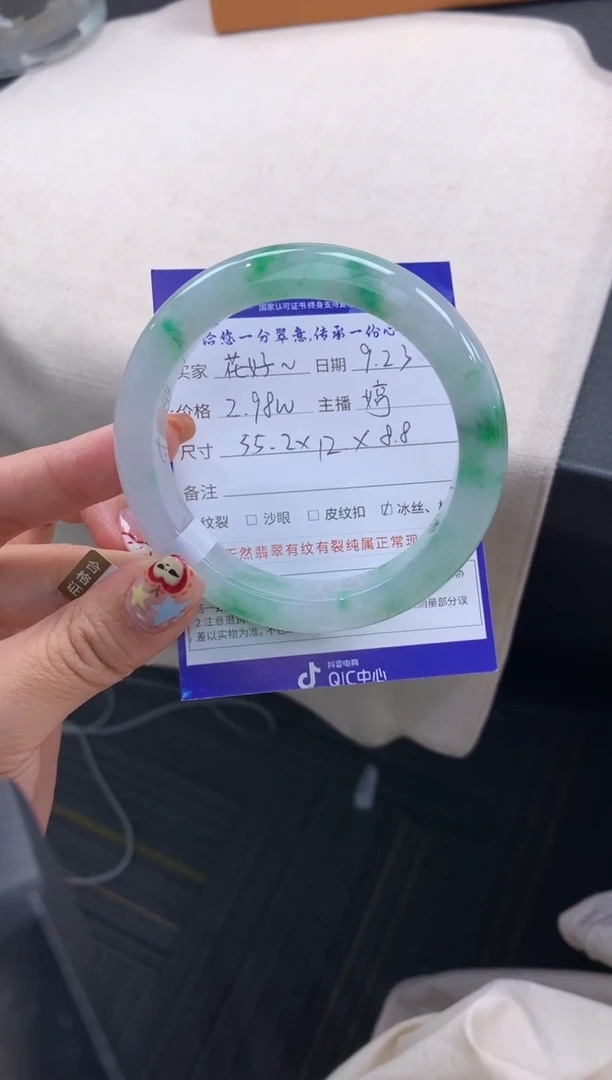 国家认可证书 终身支持
给您一分翠意,传承一份心
买家 花好~ 日期 9.23
价格 2.98W 主播 婷
尺寸 55.2×12×8.8
备注
纹裂 □ 沙眼 □ 皮纹扣 ☑ 冰丝、
天然翡翠有纹有裂纯属正常现
合格证
2.注意退货
测量部分误
差以实物为准。
抖音电商
QIC中心